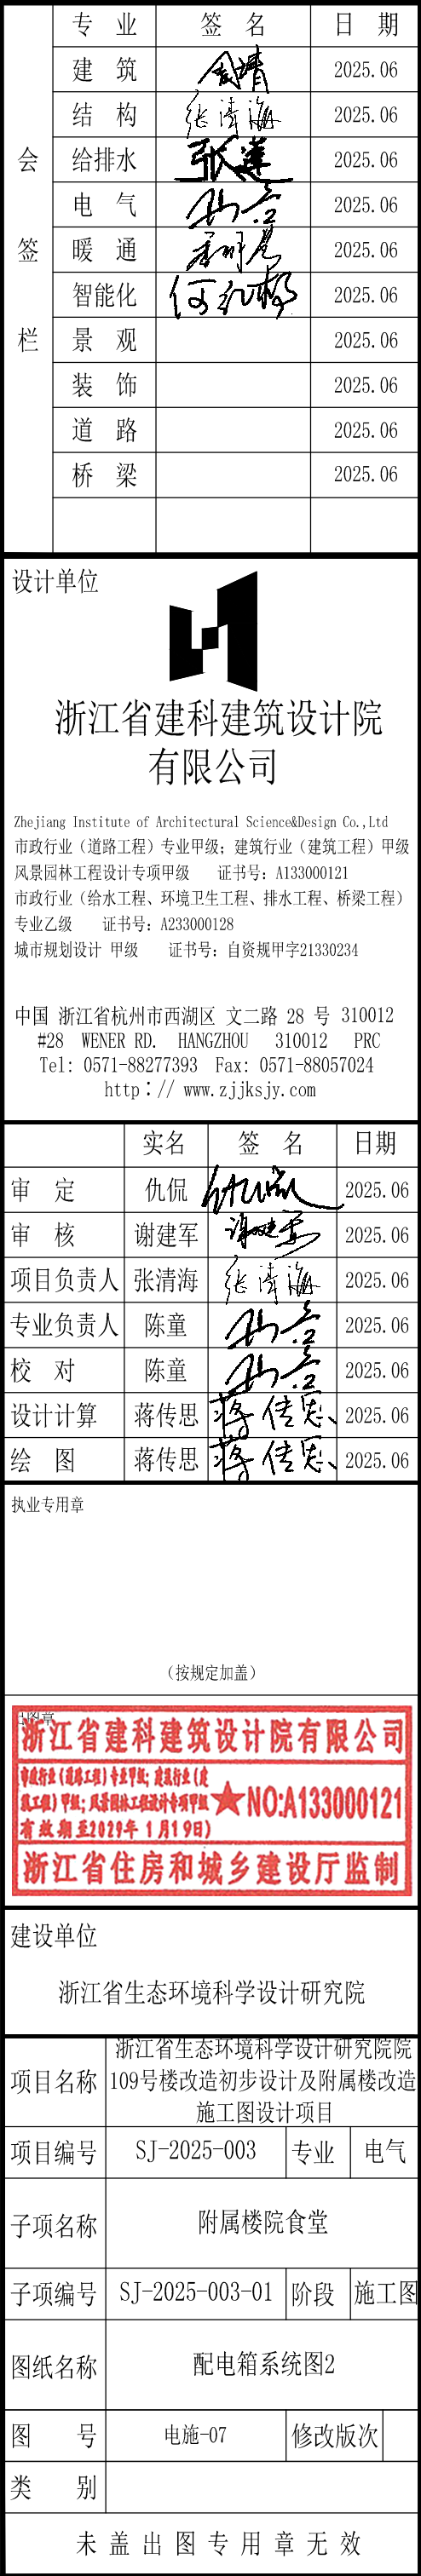 专 业 签 名 日 期
会签栏
建 筑 2025.06
结 构 张清海 2025.06
给排水 张莲 2025.06
电 气 2025.06
暖 通 2025.06
智能化 2025.06
景 观 2025.06
装 饰 2025.06
道 路 2025.06
桥 梁 2025.06
设计单位
浙江省建科建筑设计院
有限公司
Zhejiang Institute of Architectural Science&Design Co.,Ltd
市政行业（道路工程）专业甲级; 建筑行业（建筑工程）甲级
风景园林工程设计专项甲级 证书号: A133000121
市政行业（给水工程、环境卫生工程、排水工程、桥梁工程）
专业乙级 证书号: A233000128
城市规划设计 甲级 证书号: 自资规甲字21330234
中国 浙江省杭州市西湖区 文二路 28 号 310012
#28 WENER RD. HANGZHOU 310012 PRC
Tel: 0571-88277393 Fax: 0571-88057024
http：// www.zjjksjy.com
实名 签 名 日期
审 定 仇侃 仇侃 2025.06
审 核 谢建军 谢建军 2025.06
项目负责人 张清海 张清海 2025.06
专业负责人 陈童 2025.06
校 对 陈童 2025.06
设计计算 蒋传思 蒋传思 2025.06
绘 图 蒋传思 蒋传思 2025.06
执业专用章
（按规定加盖）
浙江省建科建筑设计院有限公司
市政行业(道路工程)专业甲级; 建筑行业(建
筑工程)甲级; 风景园林工程设计专项甲级
有效期至2029年1月19日)
★NO:A133000121
浙江省住房和城乡建设厅监制
建设单位
浙江省生态环境科学设计研究院
项目名称
浙江省生态环境科学设计研究院院
109号楼改造初步设计及附属楼改造
施工图设计项目
项目编号 SJ-2025-003 专业 电气
子项名称 附属楼院食堂
子项编号 SJ-2025-003-01 阶段 施工图
图纸名称 配电箱系统图2
图 号 电施-07 修改版次
类 别
未 盖 出 图 专 用 章 无 效